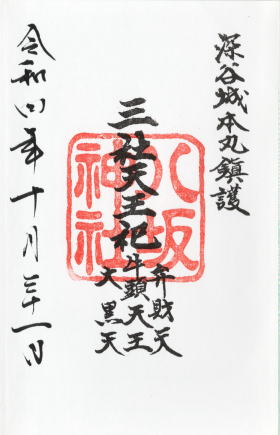 深谷城本丸鎮護
三社天王祀
弁財天
牛頭天王
大黒天
八坂
神社
令和四年十月三十一日